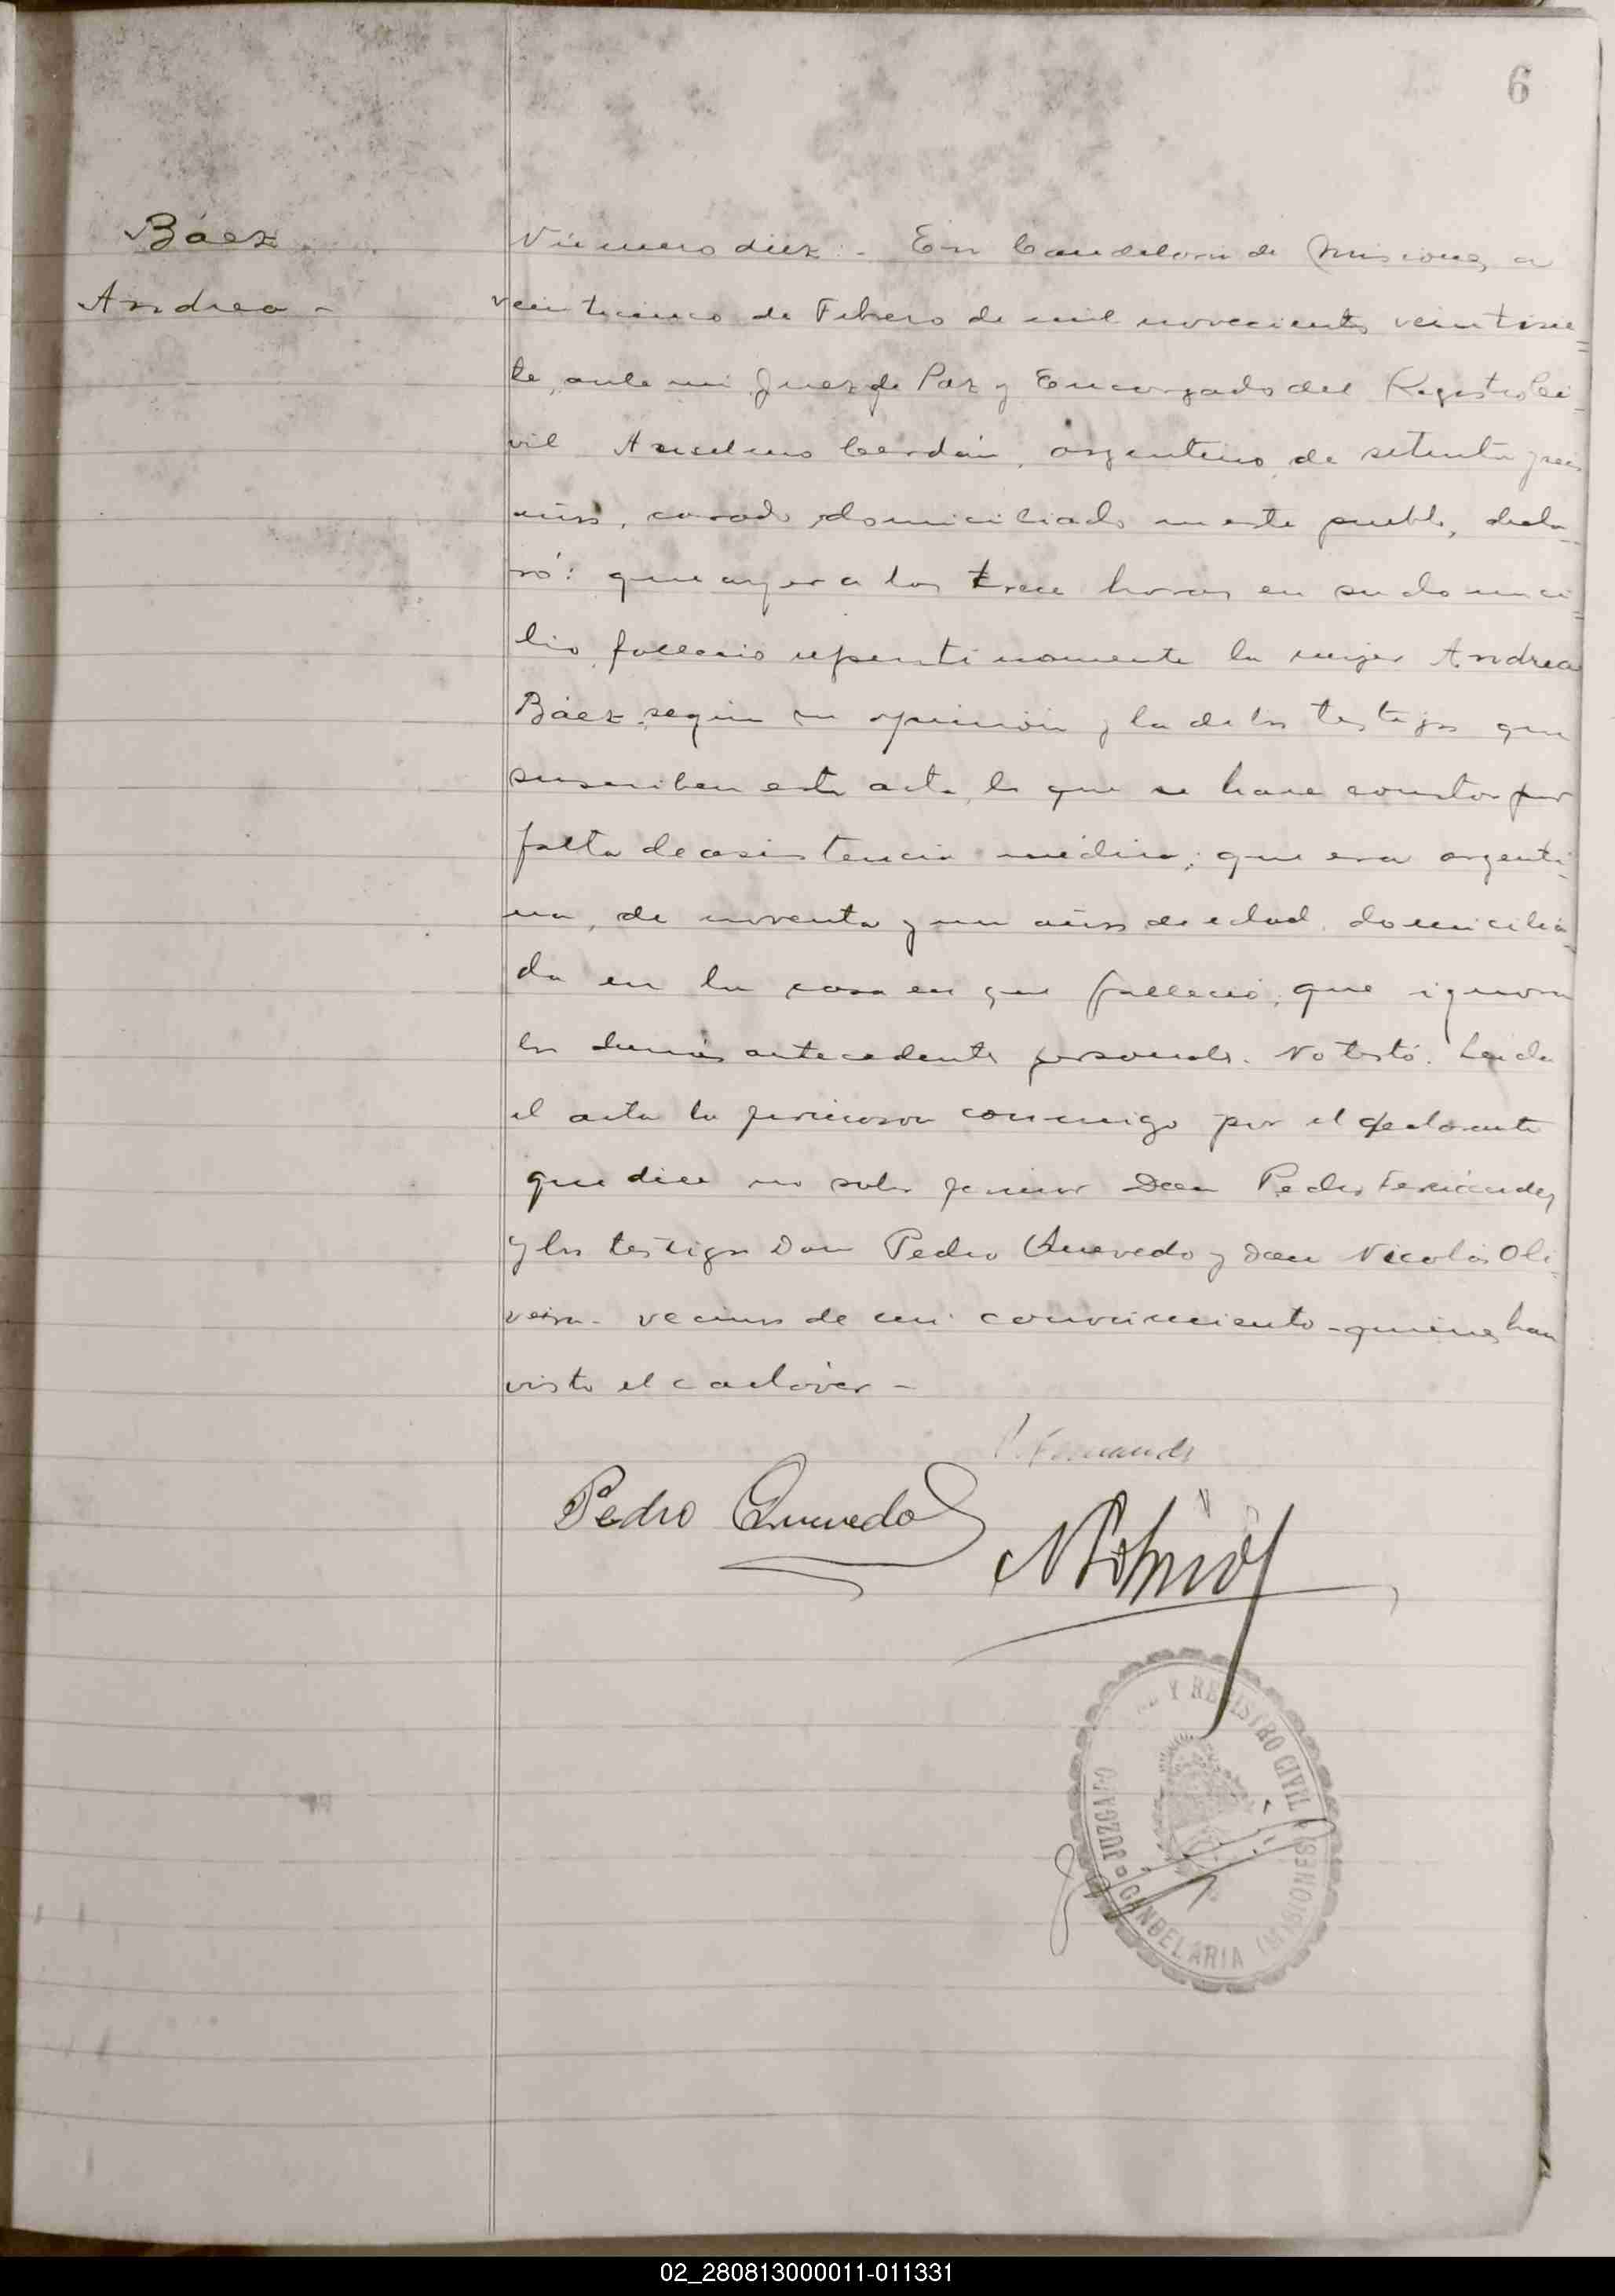 6
Báez
Andrea -
Número diez: - En Candelaria de Misiones, a
veinticinco de Febrero de mil novecientos veintisie=
te, ante mi Juez de Paz y Encargado del Registro Ci-
vil Anselmo Cerdán, argentino, de setenta y seis
años, casado domiciliado en este pueblo, decla-
ró: que ayer a las trece horas en su domici=
lio, falleció repentinamente la mujer Andrea
Báez, según su opinión y la de los testigos que
suscriben esta acta, lo que se hace constar por
falta de asistencia médica; que era argenti=
na, de noventa y un años de edad, domicilia-
da en la casa en que falleció; que ignora
los demás antecedentes personales. No testó. Leida
el acta la firmaron conmigo por el declarante
que dice no saber firmar Don Pedro Fernández
y los testigos Don Pedro Quevedo y Don Nicolás Oli=
veira - vecinos de mi conocimiento - quienes han
visto el cadáver -
P. Fernandez
Pedro Quevedo
JUZGADO Y REGISTRO CIVIL
CANDELARIA (MISIONES)
02_280813000011-011331